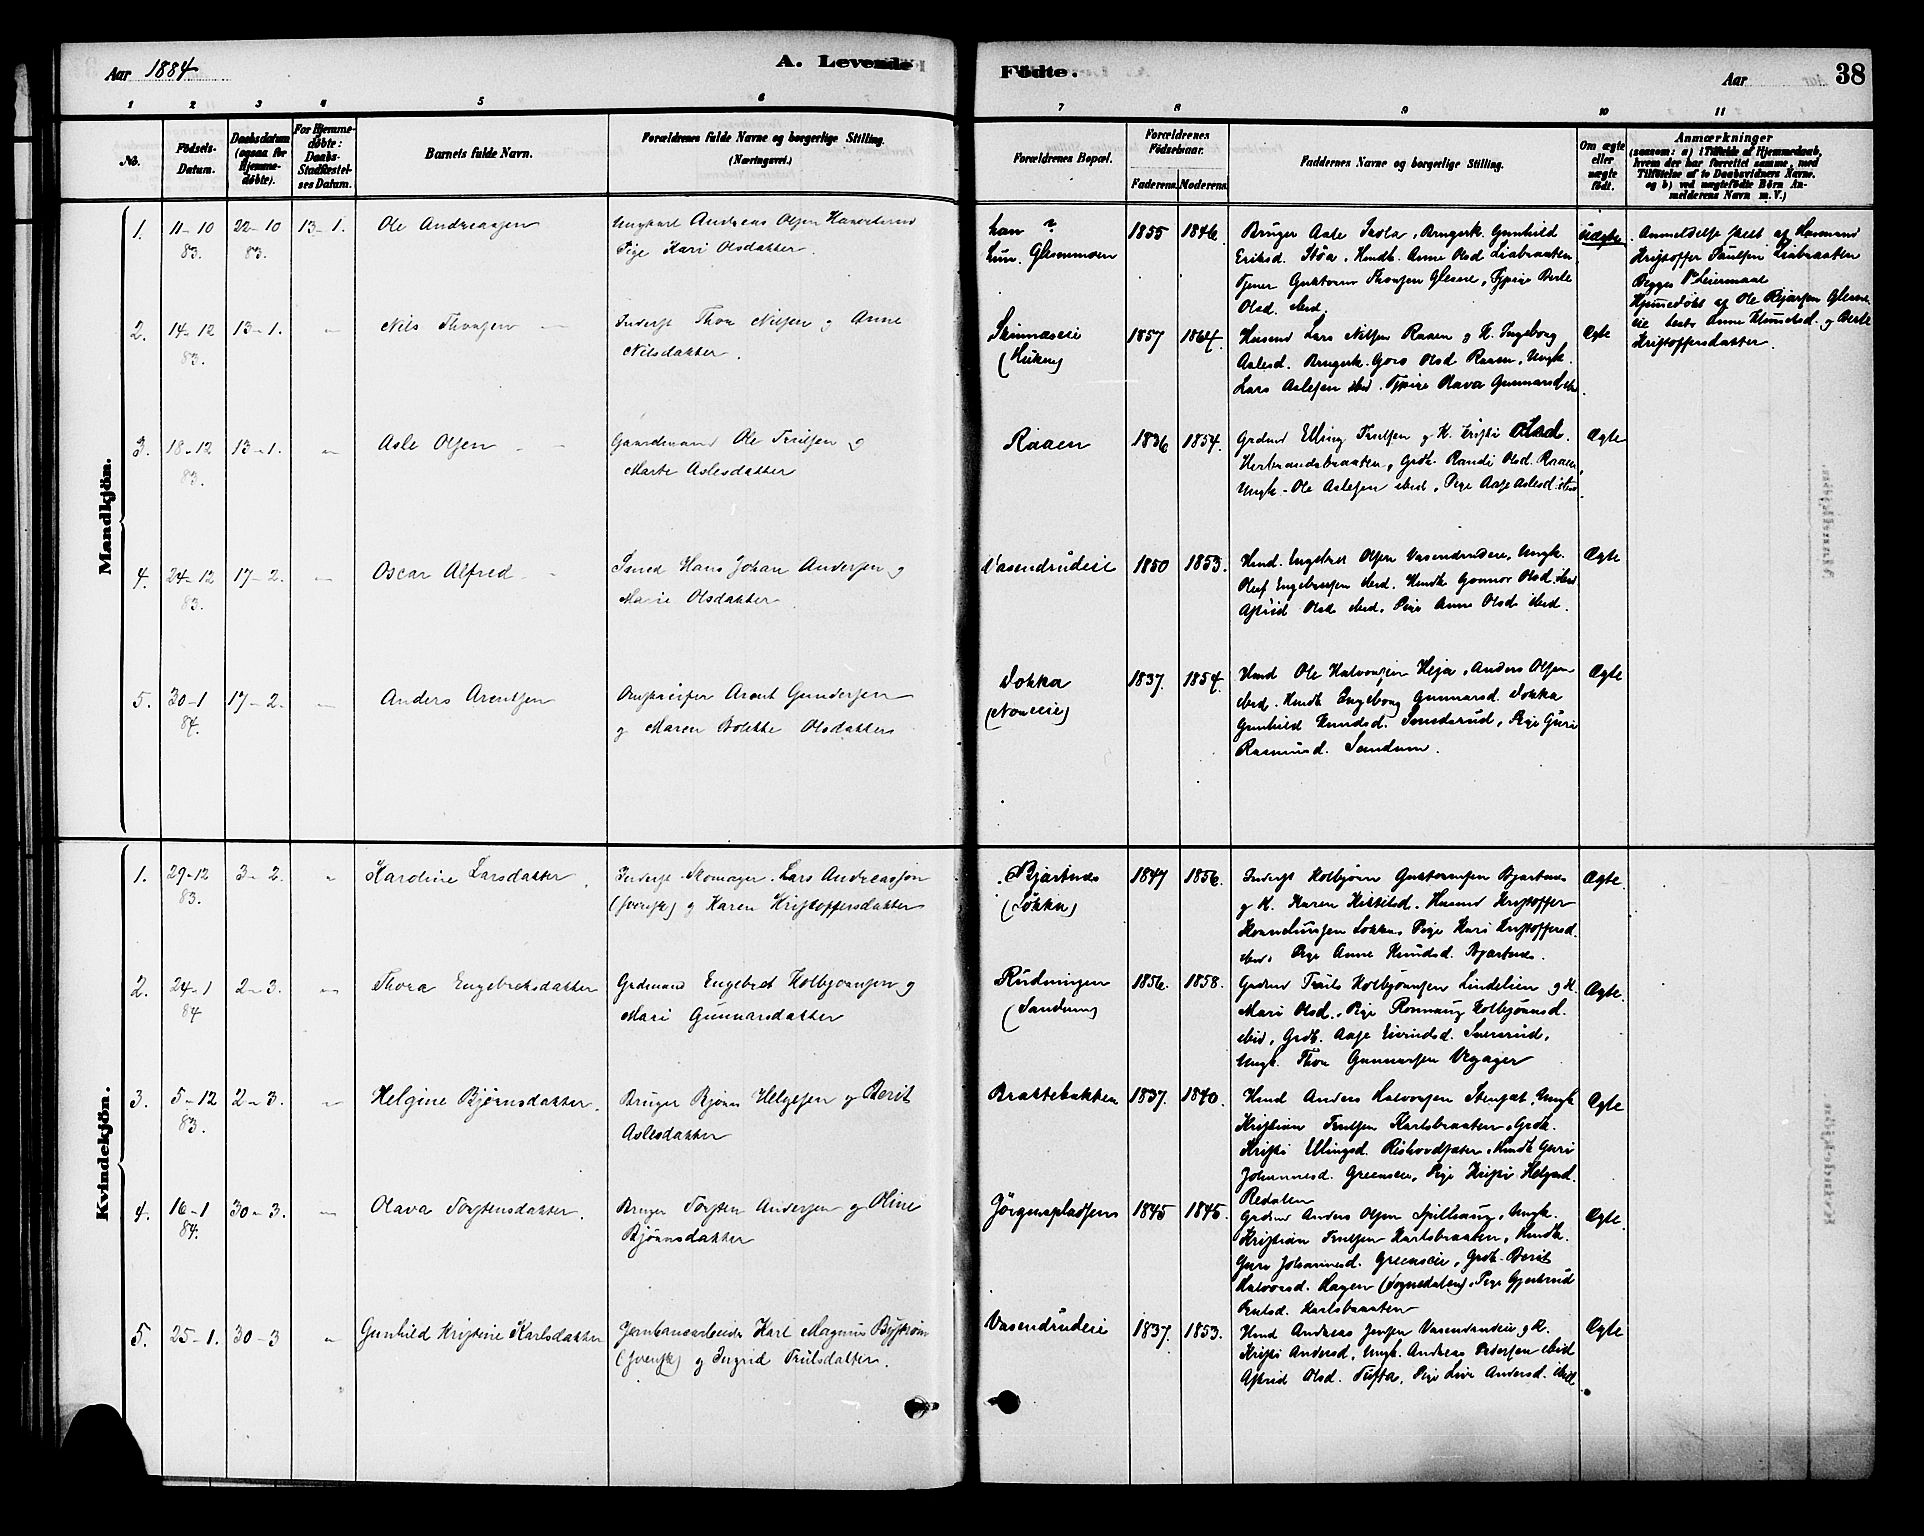 Aar 1884.
A. Levende
Fødte.
Aar
38
1 2 3 4 5 6 7 8 9 10 11
No.
Fødsels-
Datum.
Daabsdatum
(ogsaa for
Hjemme-
døbte).
For Hjemme-
døbte:
Daabs-
Stadfæstel-
ses Datum.
Barnets fulde Navn.
Forældrenes fulde Navne og borgerlige Stilling.
(Næringsvei.)
Forældrenes Bopæl.
Forældrenes
Fødselsaar.
Faderens. Moderens.
Faddernes Navne og borgerlige Stilling.
Om ægte
eller
uægte
født.
Anmærkninger
(saasom: a) i Tilfælde af Hjemmedaab,
hvem der har forrettet samme, med
Tilføielse af to Daabsvidners Navne.
og b) ved uægtefødte Børn An-
melderens Navn m. V.)
Mandkjøn.
1. 11-10 83. 22-10 83. 13-1. Ole Andreassen
Ungkarl Andreas Olsen
Pige Kari Olsdatter
han ?
hun. Glesmmoen
1855 1846.
Bruger Asle
Eriksd. Støa, Anne Olsd Liabraaten
Olsd. ibid.
Uægte
Anmeldelse skeet af Husmand
Kristoffer Paulsen Liabraaten
Begges 1ste Leiermaal
Hjemmedøbt af Ole
Kristoffersdatter.
2. 14-12 83. 13-1. " Nils Thorsen
Inderst Thor Nilsen og Anne
Nilsdatter.
1857 1864.
Husmd Lars Nilsen Raaen og K. Ingeborg
Aslesd. Brugerk. Goro Olsd Raaen, Ungk.
Lars Aslesen ibid. Tjpige Olava Gunnarsd ibd.
Ægte
3. 18-12 83. 13-1. " Asle Olsen
Gaardmand Ole Trulsen og
Marte Aslesdatter
Raaen
1836 1854.
Grdmd Elling Trulsen og K. Kristi Olsd.
Herbrandsbraaten, Grdk. Randi Olsd. Raaen,
Ungk. Ole Aslesen ibid, Pige Aase Aslesd. ibid.
Ægte
4. 24-12 83. 17-2. " Oscar Alfred
Hans Johan Andersen og
Marie Olsdatter
Vasendrudeie
1850 1853.
Hmd. Engebret Olsen Vasendrudeie, Ungk.
Oluf Engebretsen ibid. Hmdk Gonnor Olsd. ibid
Astrid Olsd ibid, Pige Anne Olsd ibid.
Ægte
5. 30-1 84. 17-2. " Anders Arentsen
Arent Gundersen
og Maren Bolette Olsdatter
Sokka
1837. 1854.
Hmd Ole Halvorsen Heja, Anders Olsen
ibid. Hmdk Engeborg Gunnarsd. Sokka
Gunhild Knudsd. Sønderud, Pige Guri
Rasmusd. Sandum.
Ægte
Kvindekjøn.
1. 29-12 83. 3-2. " Karoline Larsdatter
Inderst Skomager Lars Andreassøn
(svensk) og Karen Kristoffersdatter
Bjertnes
(Sokka)
1847 1856.
Inderst Kolbjørn Guttormsen Bjertnes
og K. Karen Kittilsd. Husmd Kristoffer
Korneliussen Sokka, Pige Kari Kristoffersd.
ibid, Pige Anne Knudsd. Bjertnes.
Ægte.
2. 24-1 84 2-3. " Thora Engebretsdatter
Grdmand Engebret Kolbjørnsen og
Mari Gunnarsdatter
Rudningen
(Sandum)
1856. 1858.
Grdmd Truls Kolbjørnsen Lindelien og K.
Mari Olsd., Pige Ronnaug Kolbjørnsd.
ibid, Grdk. Aase Eivindsd. Snersrud,
Ungk. Thor Gunnarsen Vegager
Ægte.
3. 5-12 83. 2-3. " Helgine Bjørnsdatter.
Bruger Bjørn Helgesen og Berit
Aslesdatter
Brattebakken
1837. 1840.
Hmd Anders Halvorsen, Ungk
Kristian Trulsen Karlsbraaten, Grdk.
Kristi Ellingsd. Rishovdsæter, Hmdk Guri
Johannesd. Greenseie, Pige Kristi Helgesd.
Redalen
Ægte
4. 16-1 84. 30-3. " Olava Torstensdatter.
Bruger Torsten Andersen og Oline
Bjørnsdatter
Jørgensplassen
1845 1845.
Grdmd Anders Olsen, Ungk.
Kristian Trulsen Karlsbraaten, Hmdk.
Guri Johannesd. Greenseie, Grdk. Berit
Halvorsd. Hagen (Sognedalen), Pige Gjertrud
Trulsd. Karlsbraaten
Ægte.
5. 25-1. 30-3 " Gunhild Kristine Karlsdatter
Jernbanearbeider Karl Magnus Bystrøm
(svensk) og Ingrid Trulsdatter.
Vasendrudeie
1837. 1853.
Hmd Andreas Jensen Vasendrudeie og K.
Kristi Andersd, Ungk. Andreas Pedersen ibid
Astrid Olsd. Tufta, Pige Live Andersd. ibid
Ægte